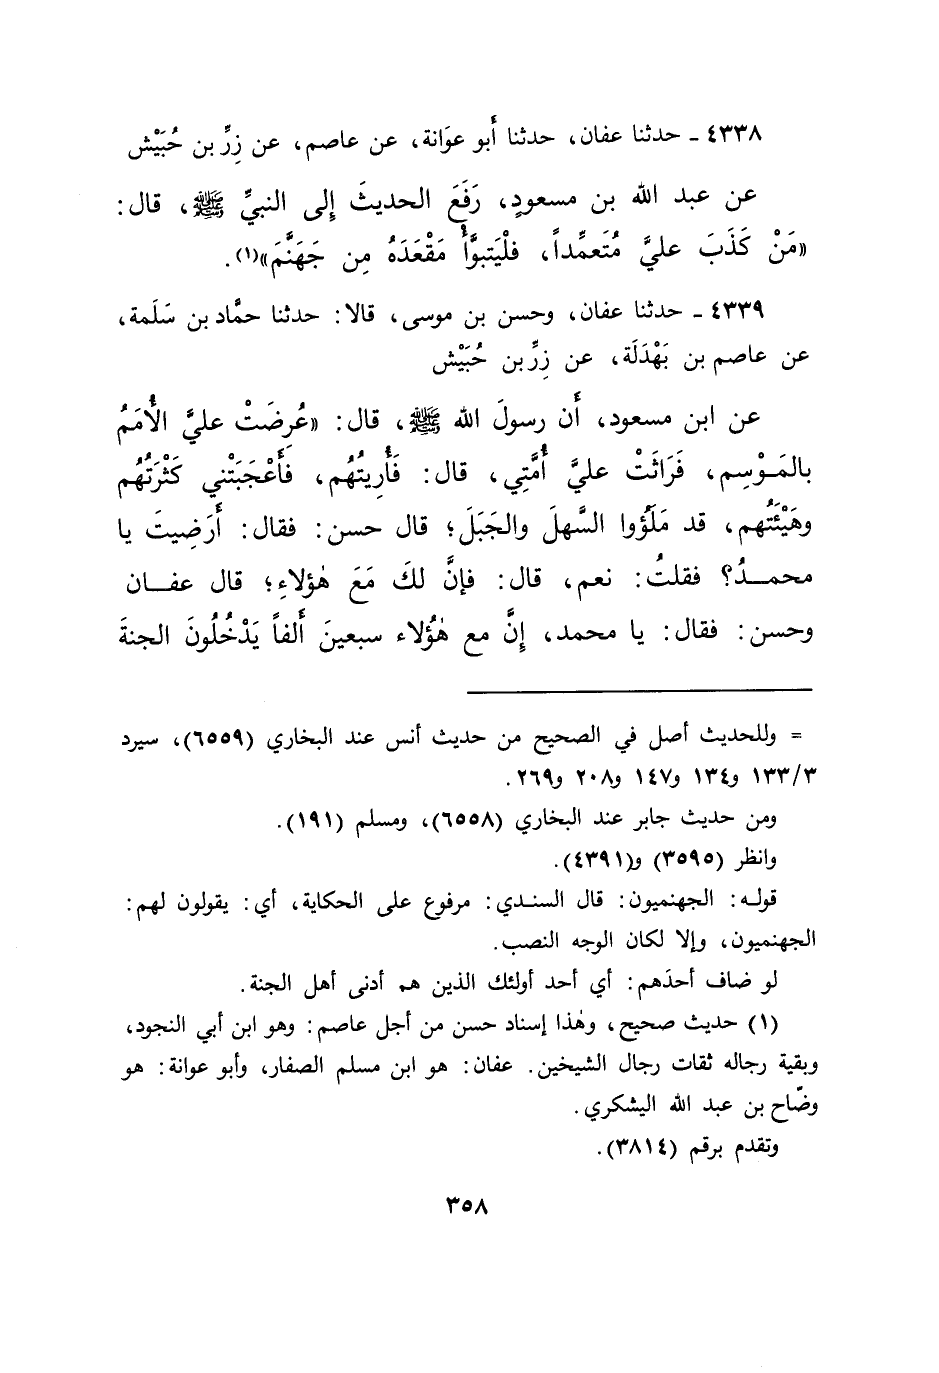 ٤٣٣٨ ـ حدثنا عفان، حدثنا أَبو عوَانة، عن عاصم، عن زِرِّ بن حُبَيْش
عن عبد الله بن مسعودٍ، رَفَعَ الحديثَ إِلى النبيِّ ﷺ، قال:
«مَنْ كَذَبَ عليَّ مُتَعمِّداً، فلْيَتبوَّأْ مَقْعَدَهُ مِن جَهَنَّمَ»(١).
٤٣٣٩ ـ حدثنا عفان، وحسن بن موسى، قالا: حدثنا حمَّاد بن سَلَمة،
عن عاصم بن بَهْدَلَة، عن زِرِّ بن حُبَيْش
عن ابن مسعود، أَن رسولَ الله ﷺ، قال: «عُرِضَتْ عليَّ الأُمَمُ
بالمَوْسِمِ، فَرَاثَتْ عليَّ أُمَّتِي، قال: فَأُرِيتُهُم، فَأَعْجَبَتْني كَثْرَتُهُم
وهَيْئَتُهم، قد مَلَؤُوا السَّهلَ والجَبَلَ؛ قال حسن: فقال: أَرَضِيتَ يا
محمدُ؟ فقلتُ: نعم، قال: فإنَّ لكَ مَعَ هٰؤلاءِ؛ قال عفان
وحسن: فقال: يا محمد، إِنَّ مع هٰؤُلاء سبعينَ أَلفاً يَدْخُلُونَ الجنةَ
= وللحديث أصل في الصحيح من حديث أنس عند البخاري (٦٥٥٩)، سيرد
١٣٣/٣ و١٣٤ و١٤٧ و٢٠٨ و٢٦٩.
ومن حديث جابر عند البخاري (٦٥٥٨)، ومسلم (١٩١).
وانظر (٣٥٩٥) و(٤٣٩١).
قوله: الجهنميون: قال السندي: مرفوع على الحكاية، أي: يقولون لهم:
الجهنميون، وإلا لكان الوجه النصب.
لو ضاف أحدَهم: أي أحد أولئك الذين هم أدنى أهل الجنة.
(١) حديث صحيح، وهٰذا إسناد حسن من أجل عاصم: وهو ابن أبي النجود،
وبقية رجاله ثقات رجال الشيخين. عفان: هو ابن مسلم الصفار، وأبو عوانة: هو
وضّاح بن عبد الله اليشكري.
وتقدم برقم (٣٨١٤).
٣٥٨